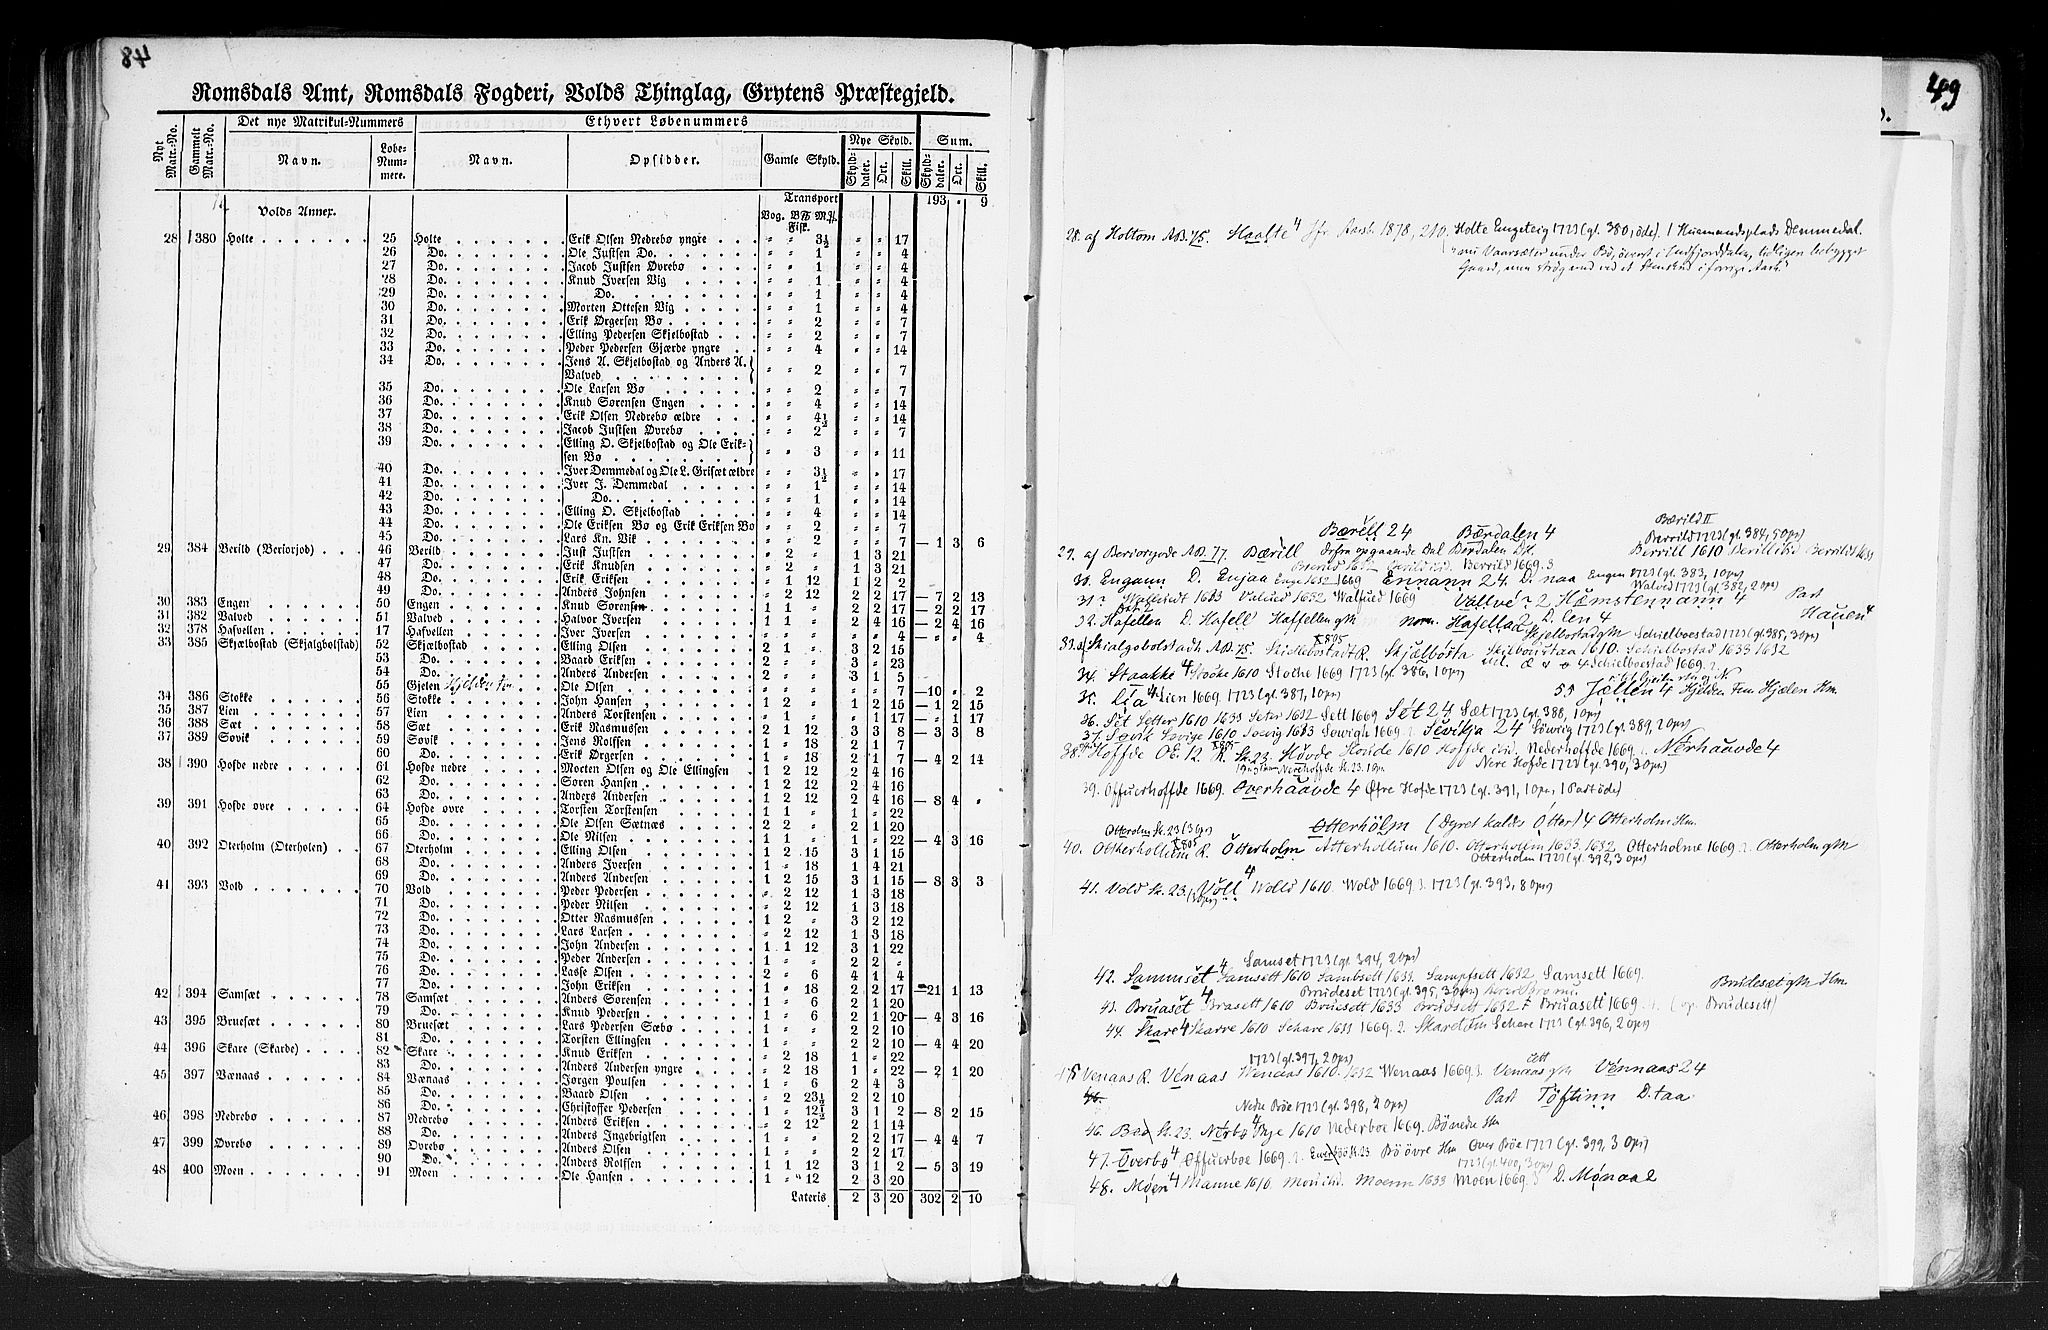 84
Romsdals Amt, Romsdals Fogderi, Volds Thinglag, Grytens Præstegjeld.
Nyt Matr.-No. Gammelt Matr.-No. Det nye Matrikul-Nummers Ethvert Løbenummers Sum.
Navn. Løbe-Nummere. Navn. Opsidder. Gamle Skyld. Nye Skyld.
Skylddaler. Ort. Skill. Skylddaler. Ort. Skill.
Transport 193 „ 9
Volds Annex. Vog. Fisk.
28 380 Holte 25 Holte Erik Olsen Nedrebø yngre „ „ 3½ „ „ 17
26 Do. Ole Justsen Do. „ „ 1 „ „ 4
27 Do. Jacob Justsen Øvrebø „ „ 1 „ „ 4
28 Do. Knud Iversen Vig „ „ 1 „ „ 4
29 Do. Do. „ „ 1 „ „ 4
30 Do. Morten Ottesen Vig „ „ 1 „ „ 4
31 Do. Erik Ørgersen Bø „ „ 2 „ „ 7
32 Do. Elling Pedersen Skjelbostad „ „ 2 „ „ 7
33 Do. Peder Pedersen Gjærde yngre „ „ 4 „ „ 14
34 Do. Jens A. Skjelbostad og Anders A.
Valved „ „ 2 „ „ 7
35 Do. Ole Larsen Bø „ „ 2 „ „ 7
36 Do. Knud Sørensen Engen „ „ 4 „ „ 14
37 Do. Erik Olsen Nedrebø ældre „ „ 4½ „ „ 14
38 Do. Jacob Justsen Øvrebø „ „ 2 „ „ 7
39 Do. Elling O. Skjelbostad og Ole Erik-
sen Bø „ „ 3 „ „ 11
40 Do. Iver Demmedal og Ole L. Grisæt ældre „ „ 3½ „ „ 17
41 Do. Iver J. Demmedal „ „ 1 „ „ 14
42 Do. Do. „ „ 1 „ „ 14
43 Do. Elling O. Skjelbostad „ „ 4 „ „ 14
44 Do. Ole Eriksen Bø og Erik Eriksen Bø „ „ 2 „ „ 7
45 Do. Lars Kn. Vik „ „ 2 „ „ 7 — 1 3 6
29 384 Berild (Beriorjod) 46 Berild Just Justsen „ 2 „ 1 3 21
47 Do. Erik Knudsen „ 2 „ 1 3 21
48 Do. Erik Eriksen „ 1 12 1 2 2
49 Do. Anders Johnsen „ 2 12 2 2 17 — 7 2 13
30 383 Engen 50 Engen Knud Sørensen 1 1 „ 2 2 17 — 2 2 17
31 382 Valved 51 Valved Halvor Iversen 1 1 „ 2 4 16 — 2 4 16
32 378 Hafvellen 17 Hafvellen Iver Iversen „ „ „ „ „ 4 — „ „ 4
33 385 Skjælbostad (Skjalgbolstad) 52 Skjælbostad Elling Olsen 2 1 „ 3 2 15
53 Do. Baard Eriksen 2 „ „ 3 „ 23
54 Do. Anders Andersen 2 „ „ 3 1 5
55 Gjelen Ole Olsen „ „ „ „ „ 7 — 10 „ 2
34 386 Stokke 56 Stokke John Hansen 1 2 „ 1 2 15 — 1 2 15
35 387 Lien 57 Lien Anders Torstensen „ 1 „ „ 1 17 — „ 1 17
36 388 Sæt 58 Sæt Erik Rasmussen 2 1 12 3 3 8 — 3 3 8
37 389 Søvik 59 Søvik Jens Rolfsen 1 „ 18 2 1 7
60 Do. Erik Ørgersen 1 „ 18 2 1 7 — 4 2 14
38 390 Hofde nedre 61 Hofde nedre Morten Olsen og Ole Ellingsen 1 2 12 2 4 16
62 Do. Søren Hansen 1 2 12 2 4 16
63 Do. Anders Andersen 1 2 12 2 4 16 — 8 4 „
39 391 Hofde øvre 64 Hofde øvre Torsten Torstensen 1 „ „ 1 „ 22
65 Do. Ole Olsen Sætnæs 2 2 „ 2 1 20
66 Do. Ole Nilsen 1 1 „ „ „ 22 — 4 3 16
40 392 Oterholm (Oterholen) 67 Oterholm Elling Olsen 1 2 15 3 1 15
68 Do. Anders Iversen 1 „ 18 1 4 21
69 Do. Anders Andersen 1 2 15 3 1 15 — 8 3 3
41 393 Vold 70 Vold Peder Pedersen „ 2 12 1 3 18
71 Do. Peder Nilsen „ 2 12 1 3 18
72 Do. Otter Rasmussen 1 2 „ 3 2 12
73 Do. Lars Larsen „ 2 12 1 3 18
74 Do. John Andersen 1 1 12 3 1 22
75 Do. Peder Andersen 1 „ „ 2 2 „
76 Do. Lasse Olsen 2 „ 6 4 1 4
77 Do. John Eriksen 1 „ 18 2 2 17 — 21 1 13
42 394 Samsæt 78 Samsæt Anders Sørensen 1 „ 6 2 1 20
79 Do. Knud Pedersen 1 „ 6 2 1 20 — 4 3 16
43 395 Bruesæt 80 Bruesæt Lars Pedersen Sæbø 1 „ „ 2 2 10
81 Do. Torsten Ellingsen 1 „ „ 2 2 10 — 4 4 20
44 396 Skare (Skarde) 82 Skare Knud Eriksen „ 2 18 1 „ 22
83 Do. Anders Andersen yngre „ 2 18 1 „ 22 — 2 1 20
45 397 Vænaas 84 Vænaas Jørgen Poulsen 1 „ 6 2 4 3
85 Do. Baard Olsen „ 2 23½ 2 2 10
86 Do. Christoffer Pedersen 1 „ 12½ 3 1 2 — 8 2 15
46 398 Nedrebø 87 Nedrebø Anders Eriksen „ 2 12 2 1 14
88 Do. Anders Ingebrigtsen 1 „ „ 2 2 17 — 4 4 7
47 399 Øvrebø 89 Øvrebø Anders Olsen 1 „ „ 2 2 17
90 Do. Anders Rolfsen 1 1 12 3 1 2 — 5 3 19
48 400 Moen 91 Moen Ole Hansen 1 „ 12 2 3 20
Lateris 2 3 20 302 2 10
49
28. af Holtom AB. 75. Haalte 4 jfr Aarsb. 1878, 210. Holte Engeteig 1723 (gl. 380, øde). 1 Huusmandsplads Demmedal.
Bærill 24 Bærdalen 4 Bærild II
Berrild 1723 (gl. 384, 5 opss)
29. af Beriorgode AB. 77. Bærill Berrill 1610
30. Engann D. Enjaa Enge 1632 1669 Ennann 24. D. naa Engen 1723 (gl. 383, 1 ops)
Walved 1723 (gl. 382, 2 ops)
Valved 1632 Walfued 1669 Vallvé 2 Hæmstennann 4 Part
Hauen 4
32. Hafellen D. Hafell Haffellen gM norm. Hafella 2 D. len 4
33. af Skialgobolstadh AB. 75 Skielbostadt R. Skjælbosta 1633 1632
34. Staakke 4 Stoche 1669 1723 (gl. 386, 1 ops)
35. Lia 4 Lien 1669. 1723 (gl. 387, 1 ops)
55 Jællen 4 Hjelen Hm.
36. Sét Setter 1610 1633 Seter 1632 Sett 1669 Sét 24 Sæt 1723 (gl. 388, 1 ops)
37. Sevik Sevige 1610 Soevig 1633 Sowigh 1669 Sevikja 24 Søwig 1723 (gl. 389, 2 ops)
38. Hoffde OE. 12. R. Sk. 23. Høvde Hovde 1610 Nederhoffde 1669. Nérhaavde 4
Nere Hofde 1723 (gl. 390, 3 ops)
39. Offuerhoffde 1669. Overhaavde 4 Øfre Hofde 1723 (gl. 391, 1 ops, 1 Part øde)
Otterholm Sk. 23 (3 ops) Otterhölm (Dyret kaldes Otter) 4 Otterholm Hm.
40. Ottherhollum R. Otterholm Atterhollum 1610. Otterholm 1633. 1632. Otterholme 1669. Otterholm gM
Otterholm 1723 (gl. 392, 3 ops)
41. Vold Sk. 23. Völl 4 Wolld 1610. Wold 1669. 1723 (gl. 393, 8 ops)
Samset 1723 (gl. 394, 2 ops)
42. Sammsét 4 Samsett 1610 Sambsett 1633. Sampfsett 1632 Samsett 1669.
Brudeset 1723 (gl. 395, 3 ops) Brudesæt gM Hm.
43. Bruasét 4 Brasett 1610 Bruesett 1633 Brudsett 1632 Bruasett 1669. (op. Brudesett)
44. Skare 4 Skarre 1610 Schare 1633 1669. 2 Skaret Fm Schare 1723 (gl. 396, 2 ops)
1723 (gl. 397, 2 ops)
45 Venaas R. Vénaas Wenaas 1610. 1632 Wenaas 1669. Venaas gM Vénnaas 24
46. Part Töftinn D. taa
Nedre Bøe 1723 (gl. 398, 2 ops)
46. Sk. 23. Nérbø 4 Bye 1610 Nederboe 1669. Bø nedre Hm
47. Overbø 4 Offuerboe 1669. Sk. 23. Bø øvre Hm Over Bøe 1723 (gl. 399, 3 ops)
1723 (gl. 400, 3 ops)
48. Møen 4 Manne 1610. Moenn 1633 Moen 1669. D. Mønaal